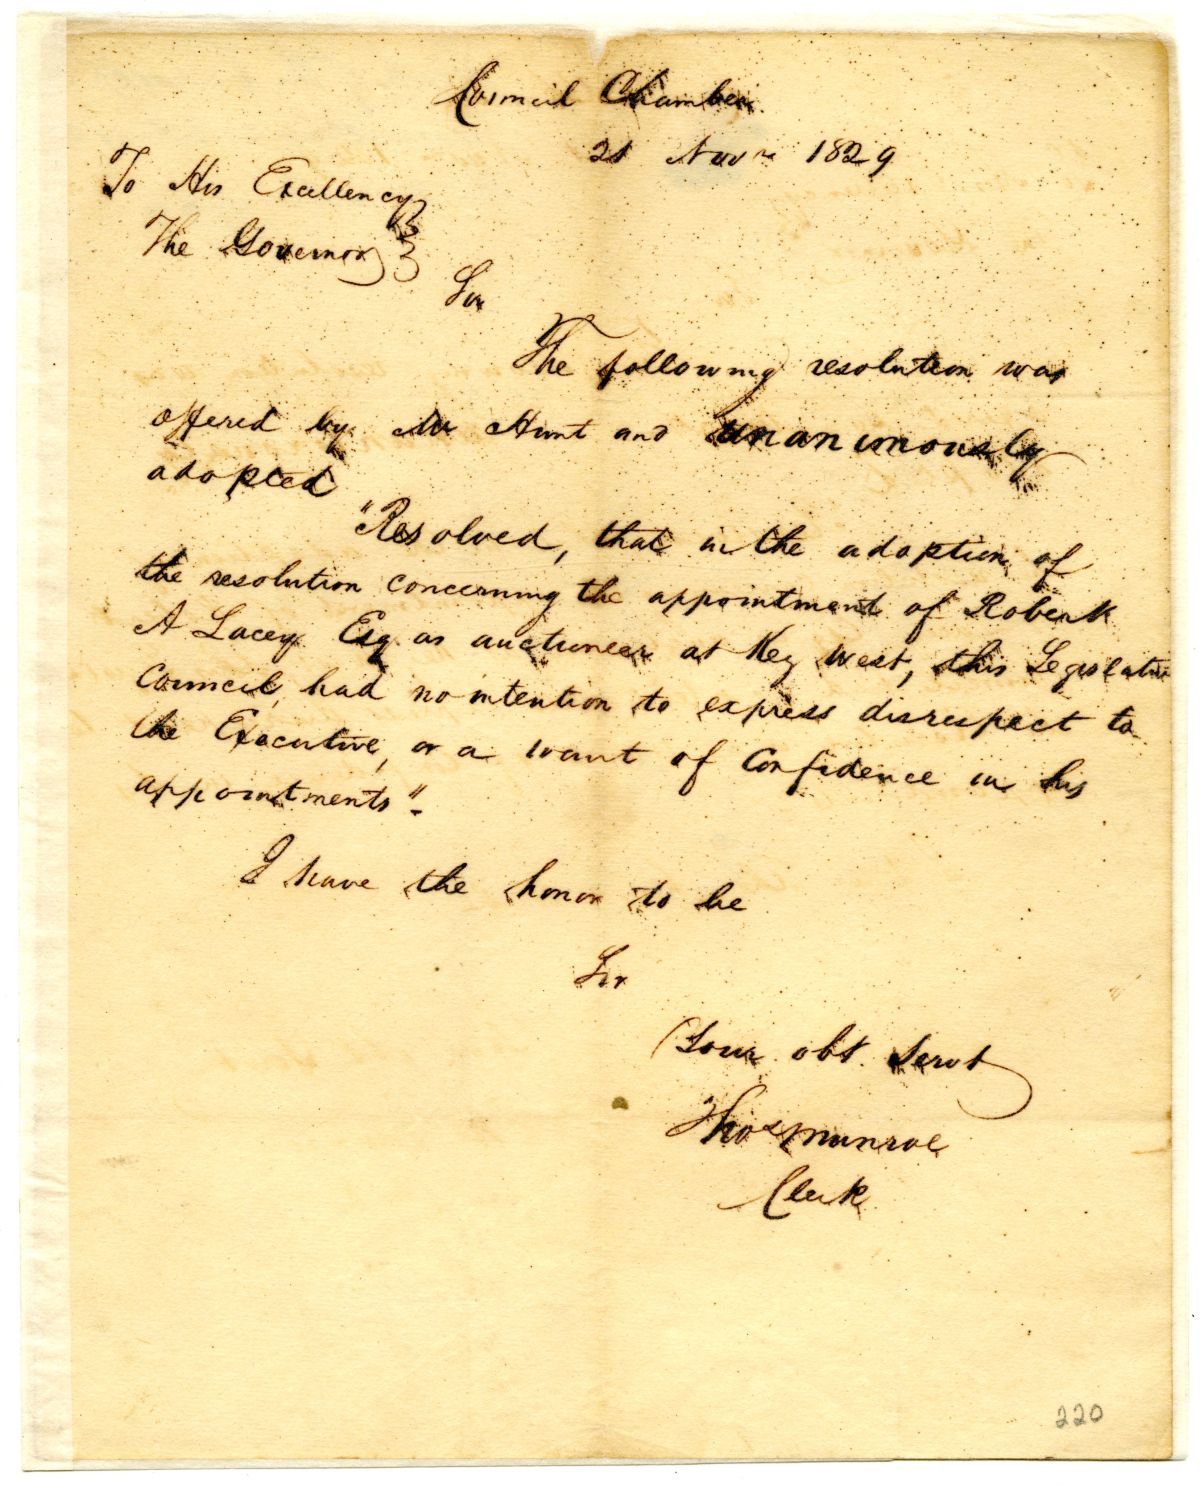 Council Chamber
21 Novr 1829
To His Excellency
The Governor
Sir
The following resolution was
offered by Mr Hunt and unanimously
adopted
"Resolved, that in the adoption of
the resolution concerning the appointment of Robert
A Lacey Esq as auctioneer at Key West, this Legislative
Council, had no intention to express disrespect to
the Executive, or a want of Confidence in his
appointments".
I have the honor to be
Sir
Your obt. Servt
Thos Munroe
Clerk
220